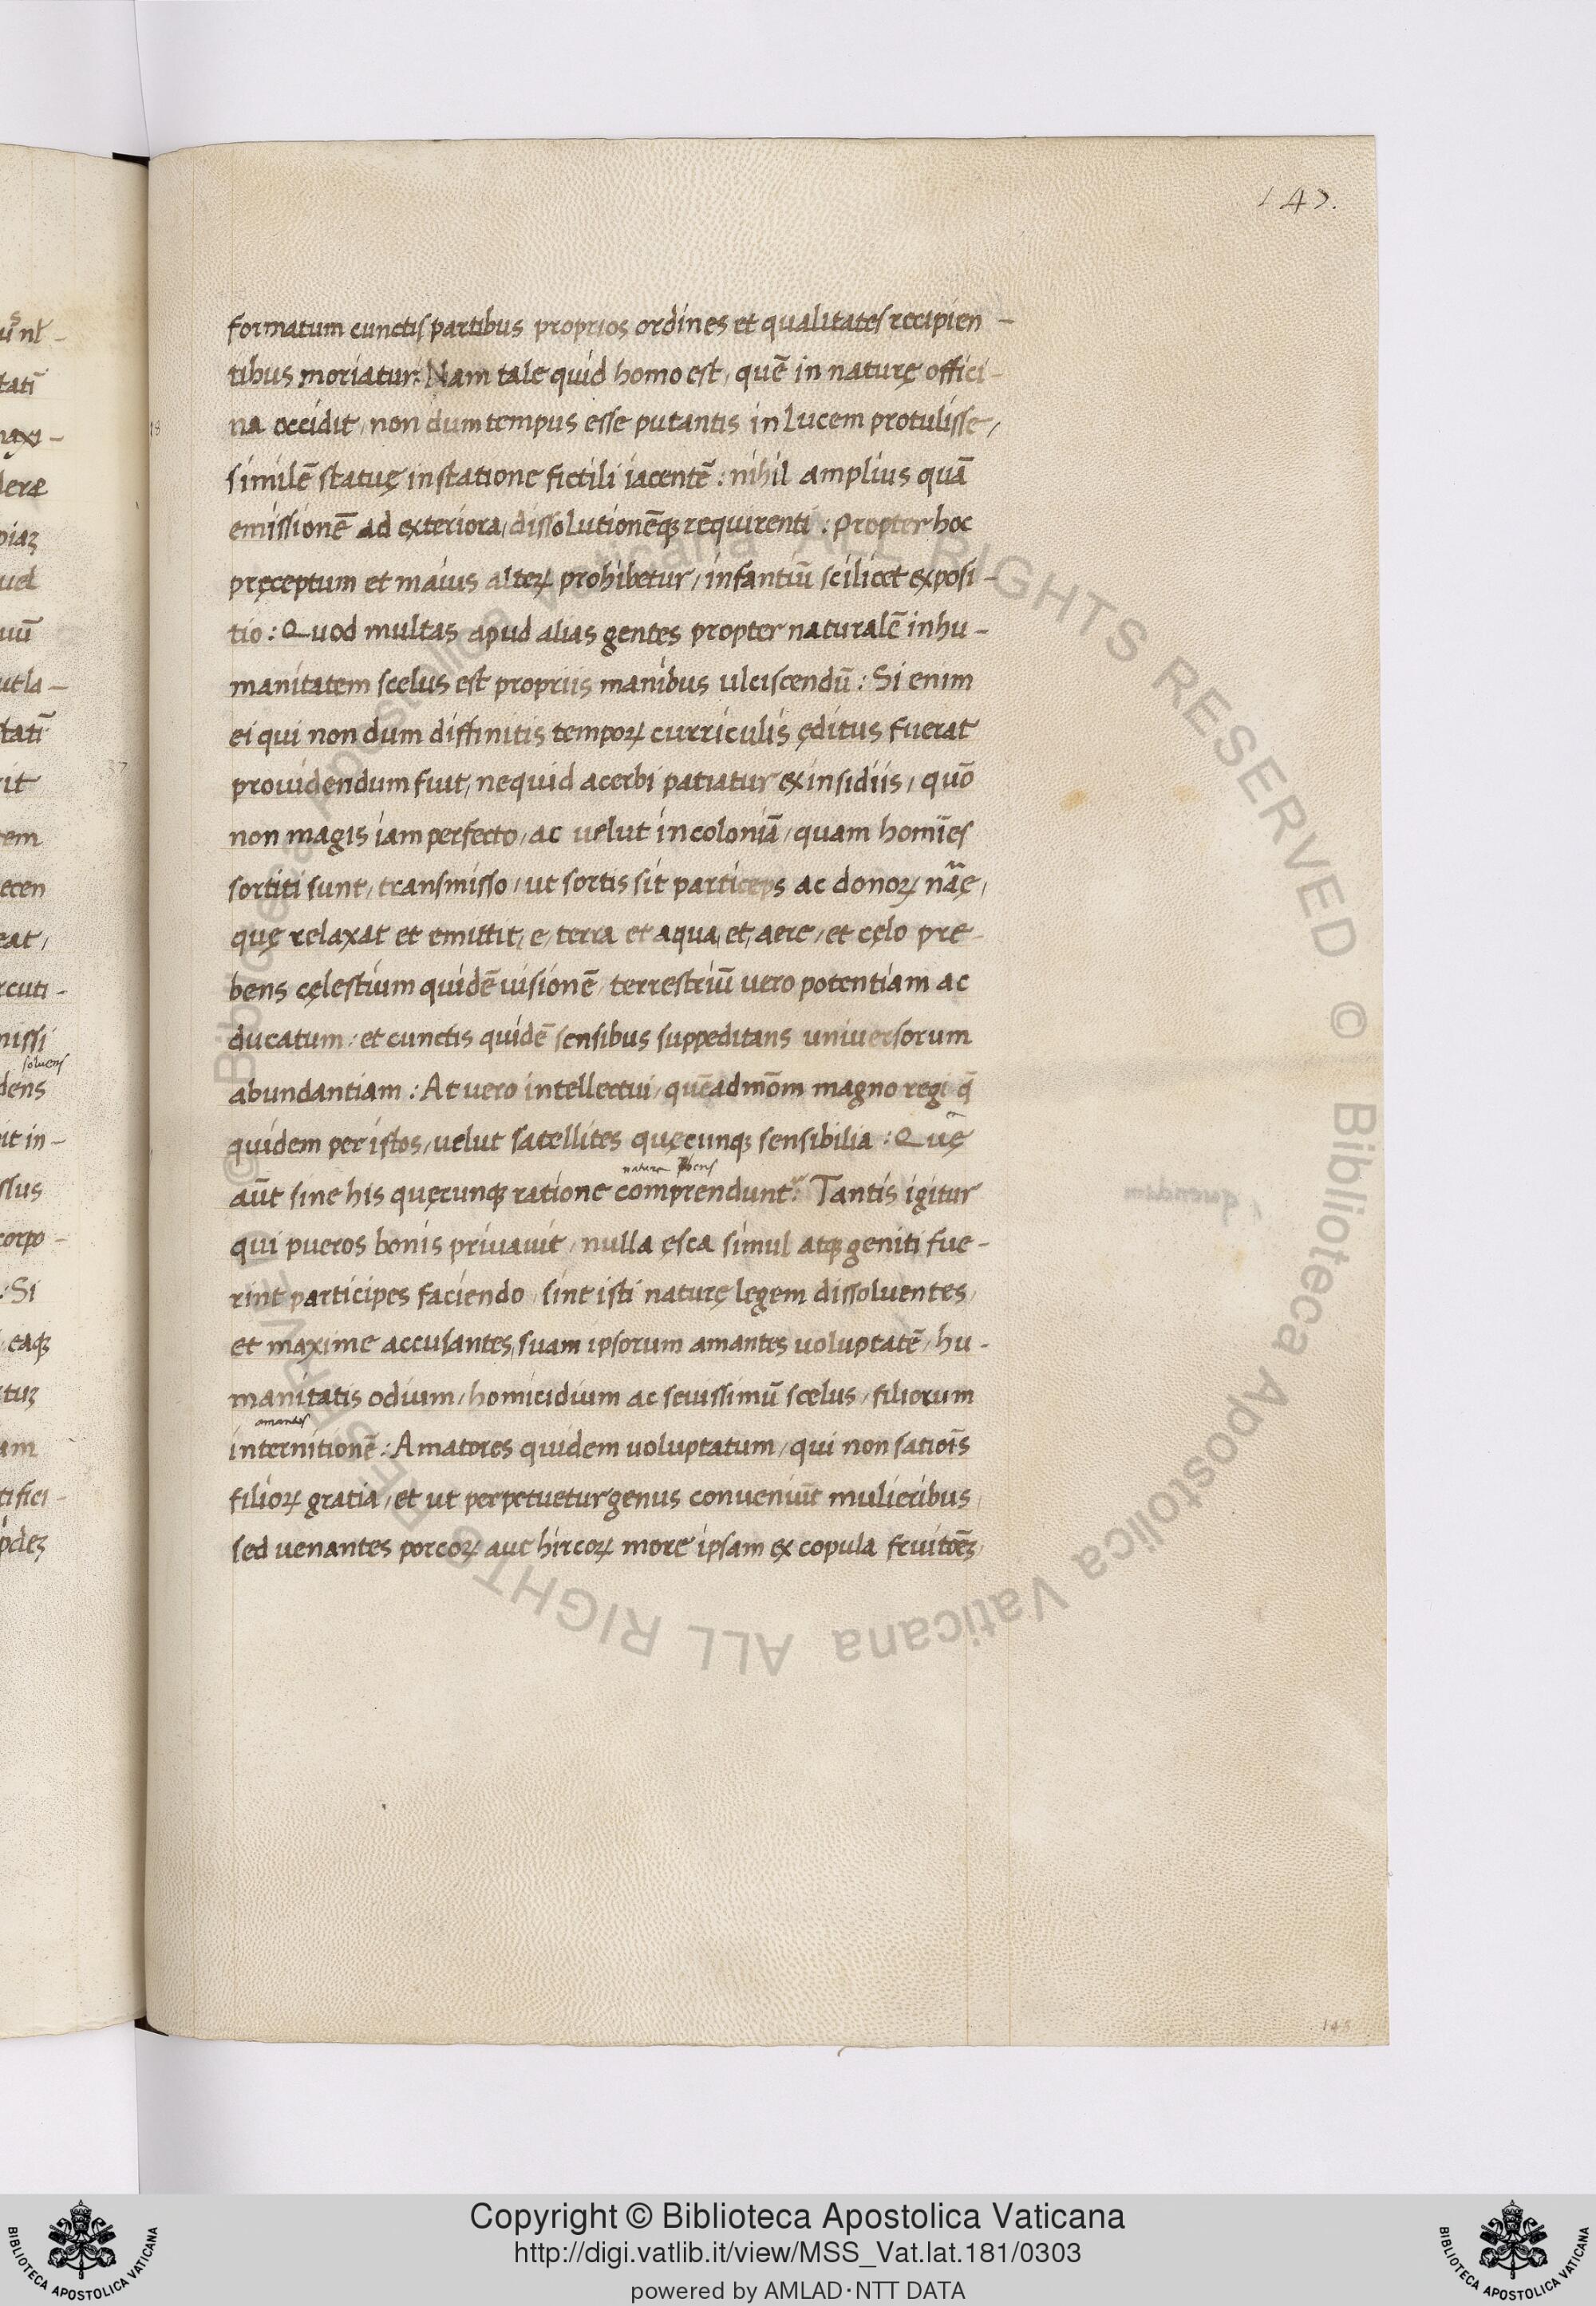 147.
formatum cunctis partibus proprios ordines et qualitates recipien-
tibus moriatur: Nam tale quid homo est, quē in naturę offici-
na occidit, non dum tempus esse putantis in lucem protulisse,
similē statuę in statione fictili iacentē: nihil amplius quā
emissionē ad exteriora, dissolutionēqꝫ requirenti: Propter hoc
pręceptum et maius alteꝝ prohibetur, infantiū scilicet exposi-
tio: Quod multas apud alias gentes propter naturalē inhu-
manitatem scelus est propriis manibus ulciscendū: Si enim
ei qui non dum diffinitis tempoꝝ curriculis ęditus fuerat
prouidendum fuit, nequid acerbi patiatur ex insidiis, quō
non magis iam perfecto, ac uelut in coloniā, quam homīes
sortiti sunt, transmisso, ut sortis sit particeps ac donoꝝ nāę,
quę relaxat et emittit, e, terra et aqua, et, aere, et cęlo pre-
bens cęlestium quidē uisionē, terrestriū uero potentiam ac
ducatum: et cunctis quidē sensibus suppeditans uniuersorum
abundantiam: At uero intellectui, quēadmōm magno regi q̄
quidem per istos, uelut satellites quęcunqꝫ sensibilia: Quę
aūt sine his quęcunqꝫ ratione comprendunt: Tantis igitur
qui pueros bonis priuauit, nulla ęsca simul atqꝫ geniti fue-
rint participes faciendo, sint isti naturę legem dissoluentes,
et maxime accusantes, suam ipsorum amantes uoluptatē, hu-
manitatis odium, homicidium ac seuissimū scelus, filiorum
amantes
internitionē: Amatores quidem uoluptatum, qui non satiōis
filioꝝ gratia, et ut perpetuetur genus conueniūt mulieribus,
sed uenantes porcoꝝ aut hircoꝝ more ipsam ex copula fruitōeꝫ,
Copyright © Biblioteca Apostolica Vaticana
http://digi.vatlib.it/view/MSS_Vat.lat.181/0303
powered by AMLAD·NTT DATA
BIBLIOTECA APOSTOLICA VATICANA
BIBLIOTECA APOSTOLICA VATICANA
© Biblioteca Apostolica Vaticana ALL RIGHTS RESERVED
© Biblioteca Apostolica Vaticana ALL RIGHTS RESERVED